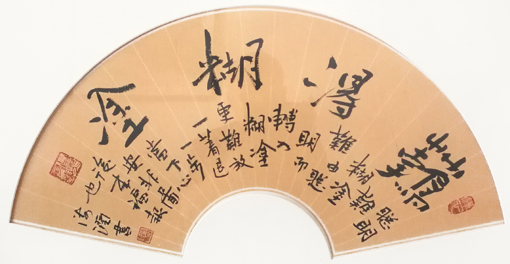 難得糊塗
聰明
難糊塗
難由聰
明而
轉入
糊塗
更難放
一著退
一步
當下心
安非圖
後來福報
也